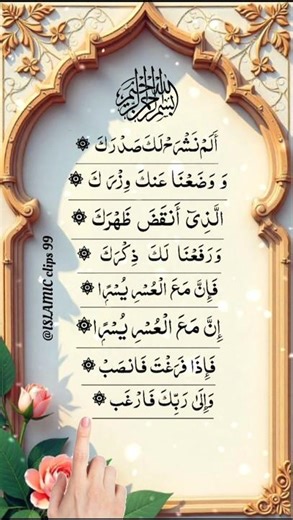 بسم الله الرحمن الرحيم
أَلَمْ نَشْرَحْ لَكَ صَدْرَكَ ۞
وَ وَضَعْنَا عَنكَ وِزْرَ كَ
الَّذِىٓ أَنْقَضَ ظَهْرَكَ ۞
وَرَفَعْنَا لَكَ ذِكْرَكَ ۞
فَإِنَّ مَعَ الْعُسْرِ يُسْرًا ۞
إِنَّ مَعَ الْعُسْرِ يُسْرًا ۞
فَإِذَا فَرَغْتَ فَانصَبْ ۞
وَإِلَىٰ رَبِّكَ فَارْغَب ۞
@ISLAMIC clips 99